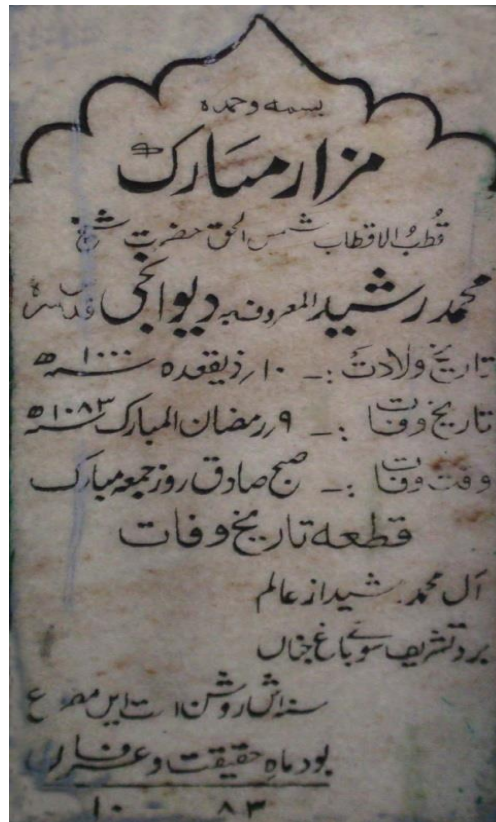 بسمہ وحمدہ
مزار مبارک
قطبُ الاقطاب شمس الحق حضرت شیخ
محمد رشید المعروف بہ دیوانجی قدس سرہ
تاریخ ولادت :- ۱۰؍ذیقعدہ ۱۰۰۰ھ
تاریخ وفات :- ۹؍رمضان المبارک ۱۰۸۳ھ
وقت وفات :- صبح صادق روز جمعہ مبارک
قطعہ تاریخ وفات
آں محمد رشید از عالم
برد تشریف سوئے باغ جناں
سنہ اش روشن است ایں مصرع
بود ماہِ حقیقت و عرفاں
۱۰ ۸۳